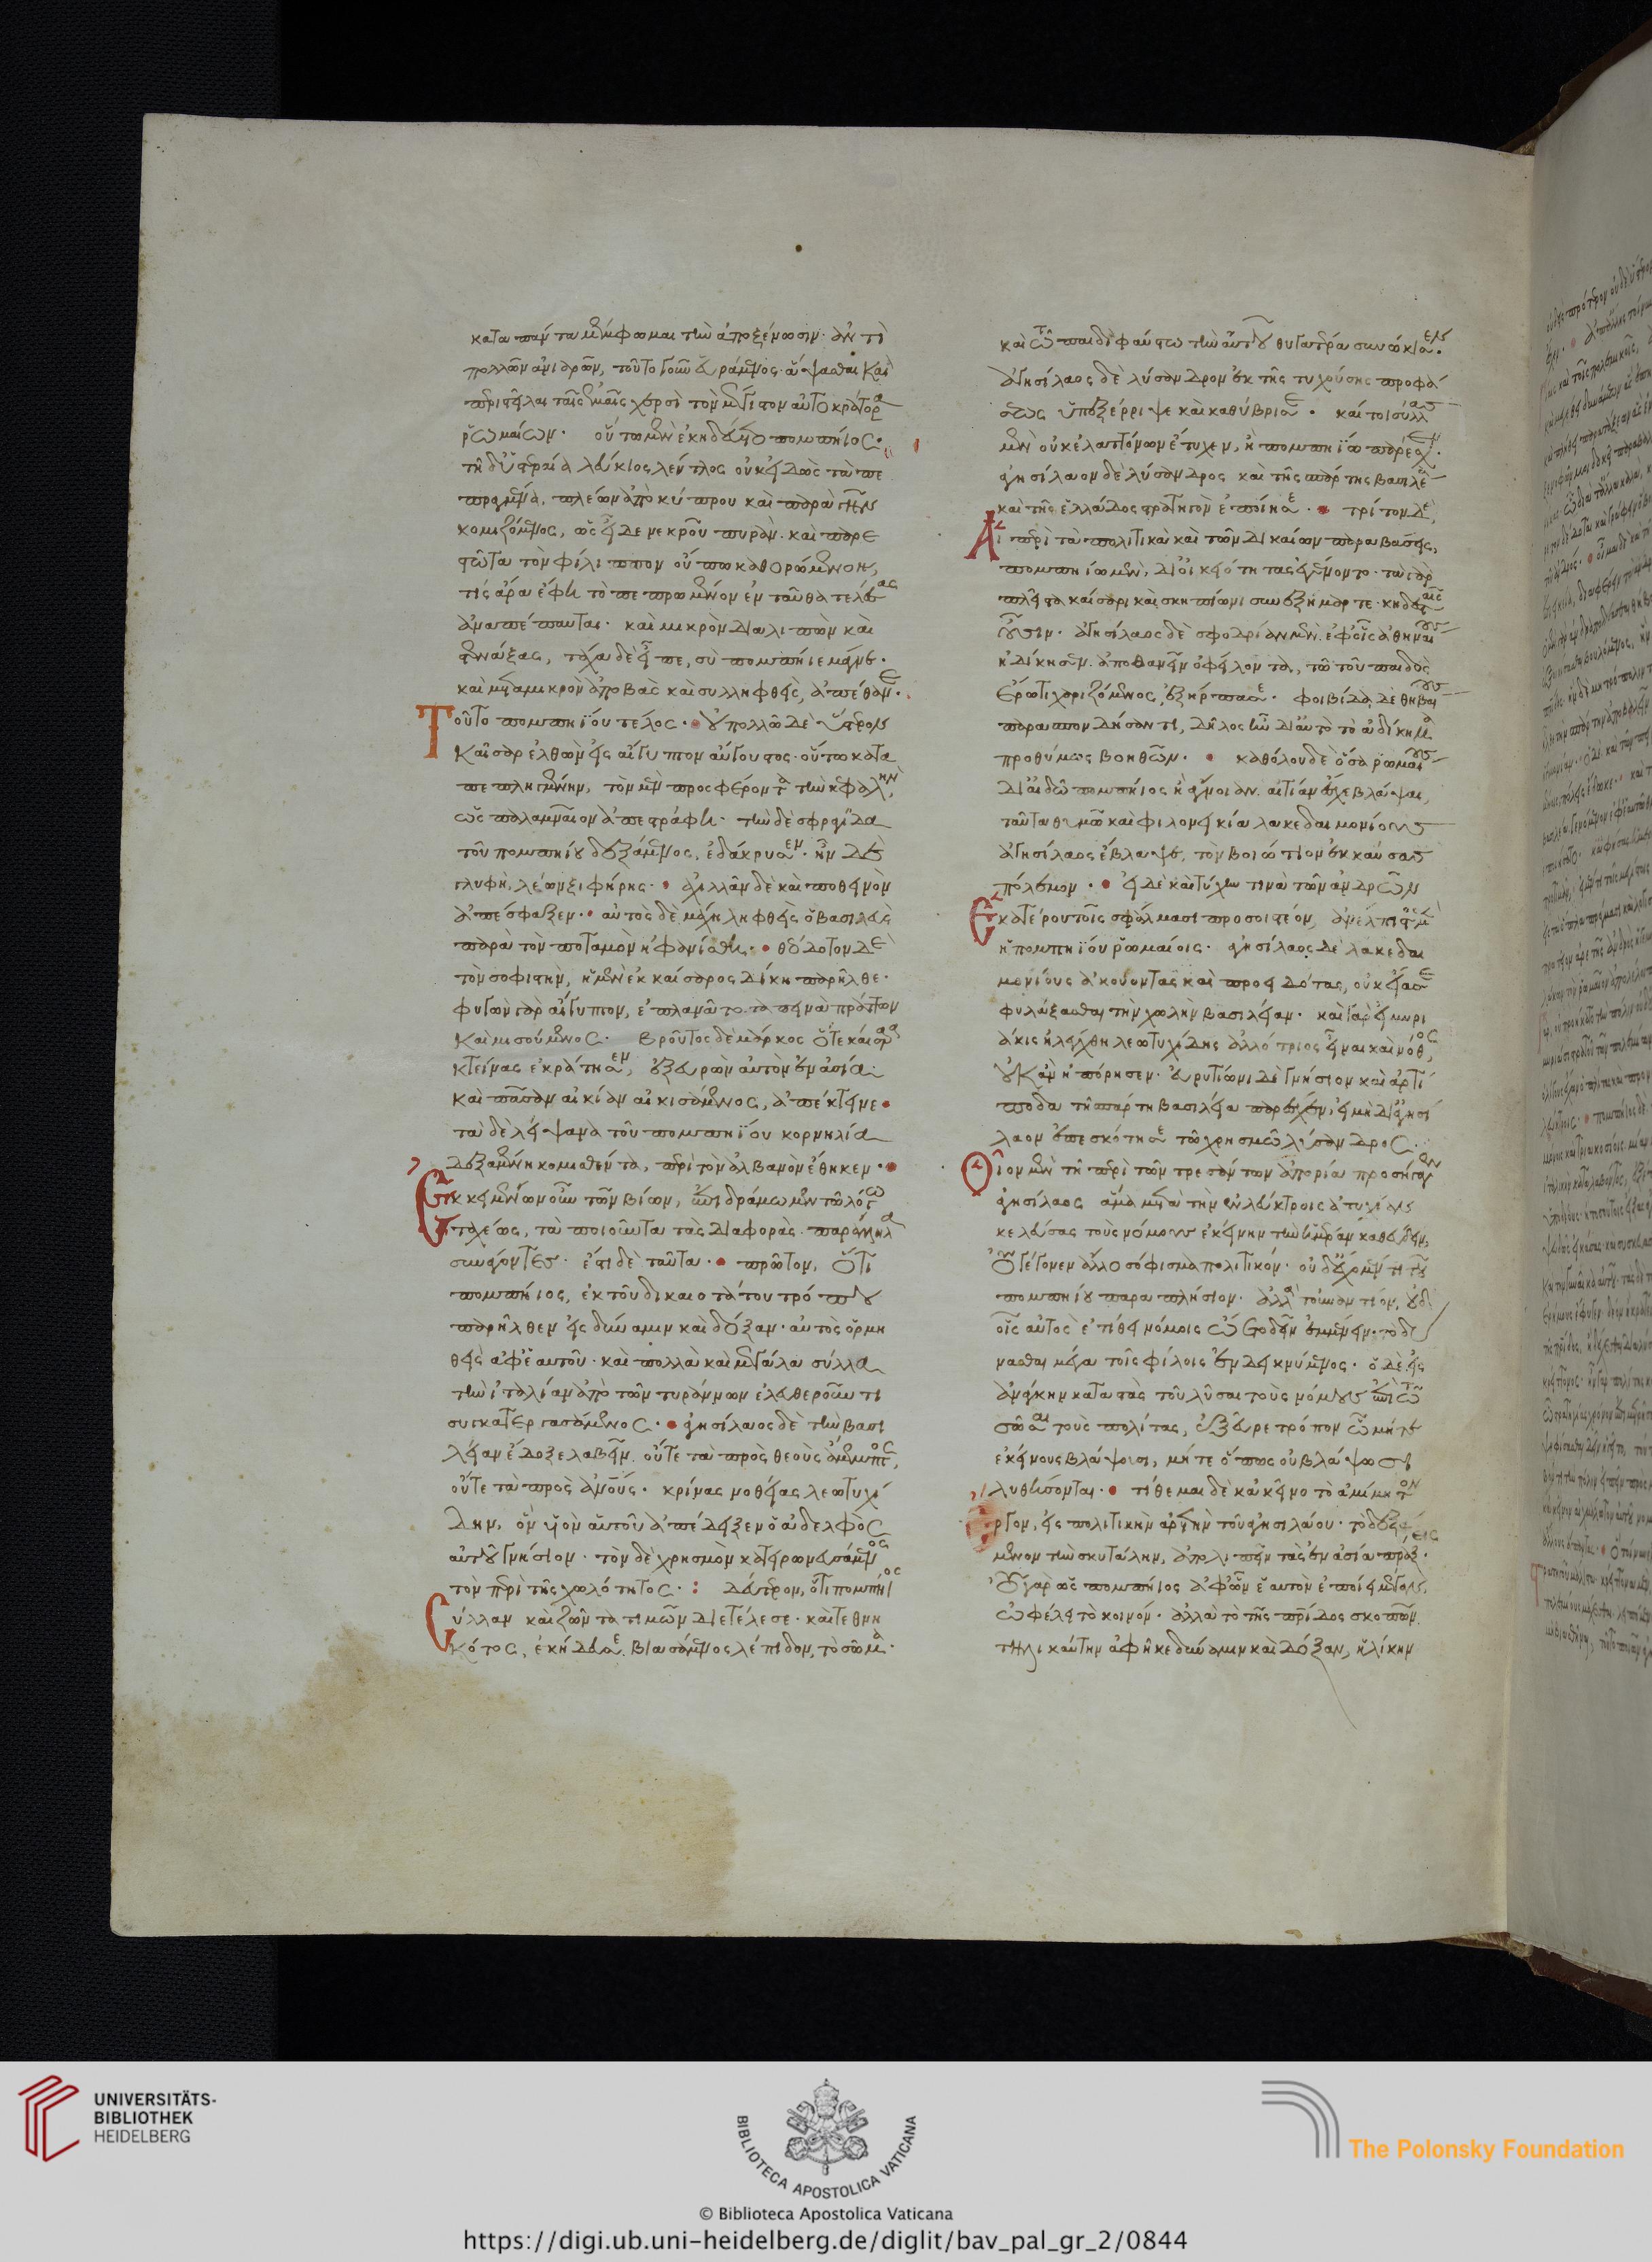 κατὰ πάντα μέμψωμαι τὴν ἀποξένωσιν· ἀντὶ
πολλῶν ἀνιαρῶν, τοῦτο γοῦν εὑράμενος· ἅψασθαι καὶ
περιστεῖλαι ταῖς ἐμαῖς χερσὶ τὸν μέγιστον αὐτοκράτορα
ῥωμαίων· οὕτω μὲν ἐκηδεύετο πομπήιος·
τῇ δ' ὑστεραίᾳ λεύκιος λέντλος οὐκ εἰδὼς τὰ πε
πραγμένα, πλέων ἀπὸ κύπρου καὶ παρὰ γῆν
κομιζόμενος, ὡς εἶδε νεκροῦ πυρὰν· καὶ παρε
στῶτα τὸν φίλιππον οὔπω καθορώμενον,
τίς ἄρα ἔφη τὸ πεπρωμένον ἐνταῦθα τελέσας
ἀναπέπαυται· καὶ μικρὸν διαλιπὼν καὶ
στενάξας, τάχα δὲ εἶπε, σὺ πομπήιε μάγνε·
καὶ μετὰ μικρὸν ἀποβὰς καὶ συλληφθεὶς, ἀπέθανε·
Τοῦτο πομπηΐου τέλος· οὐ πολλῶ δὲ ὕστερον
Καῖσαρ ἐλθὼν εἰς αἴγυπτον αὔγουστος· οὕτω κατα
τὸν μὲν προσφέροντα τὴν κεφαλὴν,
ὡς παλαμναῖον ἀπεστράφη· τὴν δὲ σφραγῖδα
τοῦ πομπηίου δεξάμενος, ἐδάκρυσεν· ἦν δὲ
γλυφὴ, λέων ξιφήρης· ἀχιλλᾶν δὲ καὶ ποθεινὸν
ἀπέσφαξεν· αὐτὸς δὲ μάχη ληφθεὶς ὁ βασιλεὺς
παρὰ τὸν ποταμὸν ἠφανίσθη· θεόδοτον δὲ
τὸν σοφιστὴν, ἡ μὲν ἐκ καίσαρος δίκη παρῆλθε·
φυγὼν γὰρ αἴγυπτον, ἐπλανᾶτο ταπεινὰ πράττων
καὶ μισούμενος· βροῦτος δὲ μάρκος ὅτε καίσαρα
κτείνας ἐκράτησεν, ἐξευρὼν αὐτὸν ἐν ἀσία·
καὶ πᾶσαν αἰκίαν αἰκισάμενος, ἀπέκτεινε·
τὰ δὲ λείψανα τοῦ πομπηΐου κορνηλία
δεξαμένη κομισθέντα, περὶ τὸν ἀλβανὸν ἔθηκεν·
Ἐκκειμένων οὖν τῶν βίων, ἐπιδράμωμεν τῶ λόγω
ταχέως, τὰ ποιοῦντα τὰς διαφορὰς· παράλληλα
συνάγοντες· ἔστι δὲ ταῦτα· πρῶτον, ὅτι
πομπήιος, ἐκ τοῦ δικαιοτάτου τρόπου
παρῆλθεν εἰς δύναμιν καὶ δόξαν· αὐτὸς ὁρμη
θεὶς ἀφ' ἑαυτοῦ· καὶ πολλὰ καὶ μεγάλα σύλλα
τὴν ἰταλίαν ἀπὸ τῶν τυράννων ἐλευθεροῦντι
συγκατεργασάμενος· ἀγησίλαος δὲ τὴν βασι
λείαν ἔδοξε λαβεῖν. οὔτε τὰ πρὸς θεοὺς ἄμεμπτος,
οὔτε τὰ πρὸς ἀνους· κρίνας νοθείας λεωτυχί
δην, ὃν υἱὸν αὑτοῦ ἀπέδειξεν ὁ ἀδελφὸς
αὐτοῦ γνήσιον· τὸν δὲ χρησμὸν κατειρωνευσάμενος
τὸν περὶ τῆς χωλότητος· δεύτερον, ὅτι πομπήιος
σύλλαν καὶ ζῶντα τιμῶν διετέλεσε· καὶ τεθνη
κότος, ἐκήδευσε βιασάμενος λέπιδον, τὸ σῶμα·
καὶ τῶ παιδὶ φαύστω τὴν αὑτοῦ θυγατέρα συνώκισεν·
ἀγησίλαος δὲ λύσανδρον ἐκ τῆς τυχούσης προφά
σεως ὑπεξέρριψε καὶ καθύβρισε· καίτοι σύλλας
μὲν οὐκ ἐλαττόνων ἔτυχεν, ἢ πομπηΐω παρέσχεν·
ἀγησίλαον δὲ λύσανδρος καὶ τῆς σπάρτης βασιλέα
καὶ τῆς ἑλλάδος στρατηγὸν ἐποίησε· τρίτον δὲ,
Αἱ περὶ τὰ πολιτικὰ καὶ τῶν δικαίων παραβάσεις,
πομπηίω μὲν, δι' οἰκειότητας ἐγένοντο· τὰ γὰρ
πλεῖστα καίσαρι καὶ σκηπίωνι συνεξήμαρτε· κηδεσταῖς
οὖσιν· ἀγησίλαος δὲ σφοδρίαν μὲν, ἐφ' οἷς ἀθηναίους
ἠδίκησεν ἀποθανεῖν ὀφείλοντα, τῶ τοῦ παιδὸς
ἔρωτι χαριζόμενος, ἐξήρπασε· φοιβίδα δὲ θηβαίους
παρασπονδήσαντι, δῆλος ἦν δι' αὐτὸ τὸ ἀδίκημα
προθύμως βοηθῶν· καθόλου δὲ ὅσα ῥωμαίους
δι' αἰδῶ πομπήιος ἢ ἄγνοιαν αἰτίαν ἔσχε βλάψαι,
ταῦτα θυμῶ καὶ φιλονεικία λακεδαιμονίους
ἀγησίλαος ἔβλαψε, τὸν βοιώτιον ἐκκαύσας
πόλεμον· εἰ δὲ καὶ τύχην τινὰ τῶν ἀνδρῶν
Ἑκατέρου τοῖς σφάλμασι προσοιστέον, ἀνέλπιστος μὲν
ἡ πομπηΐου ῥωμαίοις· ἀγησίλαος δὲ λακεδαι
μονίους ἀκούοντας καὶ προειδότας, οὐκ εἴασε
φυλάξασθαι τὴν χωλὴν βασιλείαν· καὶ γὰρ εἰ μυρι
άκις ἠλέγχθη λεωτυχίδης ἀλλότριος εἶναι καὶ νόθος,
οὐκ ἂν ἠπόρησεν· εὐρυτίωνι δὲ γνήσιον καὶ ἀρτί
ποδα τῆ σπάρτη βασιλέα παρασχεῖν, εἰ μὴ δι' ἀγησί
λαον ἐπεσκότησε τῶ χρησμῶ λύσανδρος·
Οἷον μὲν τῆ περὶ τῶν τρεσάντων ἀπορία προσήγαγεν
ἀγησίλαος ἅμα μετὰ τὴν ἐν λεύκτροις ἀτυχίαν
κελεύσας τοὺς νόμους ἐκείνην τὴν ἡμέραν καθεύδειν,
οὐ γέγονεν ἄλλο σόφισμα πολιτικόν· οὐδ' ἔχομέν τι τοῦ
πομπηίου παραπλήσιον· ἀλλὰ τοὐναντίον, οὐδὲ
οἷς αὐτὸς ἐτίθει νόμοις ᾤετο δεῖν ἐμμένειν· τὸ δύ
νασθαι μέγα τοῖς φίλοις ἐνδεικνύμενος· ὁ δὲ εἰς
ἀνάγκην καταστὰς τοῦ λῦσαι τοὺς νόμους ἐπὶ τῶ
σῶσαι τοὺς πολίτας, ἐξεῦρε τρόπον ὧ μήτε
ἐκείνους βλάψωσι, μήτε ὅπως οὐ βλάψωσι
λυθήσονται· τίθεμαι δὲ κἀκεῖνο τὸ ἀμίμητον
ἔργον, εἰς πολιτικὴν ἀρετὴν τοῦ ἀγησιλάου· τὸ δεξά
μενον τὴν σκυτάλην, ἀπολιπεῖν τὰς ἐν ἀσία πράξεις·
οὐ γὰρ ὡς πομπήιος ἀφ' ὧν ἑαυτὸν ἐποίει μέγαν,
ὠφέλει τὸ κοινόν· ἀλλὰ τὸ τῆς πατρίδος σκοπῶν
τηλικαύτην ἀφῆκε δύναμιν καὶ δόξαν, ἡλίκην
UNIVERSITÄTS-
BIBLIOTHEK
HEIDELBERG
BIBLIOTECA APOSTOLICA VATICANA
The Polonsky Foundation
© Biblioteca Apostolica Vaticana
https://digi.ub.uni-heidelberg.de/diglit/bav_pal_gr_2/0844